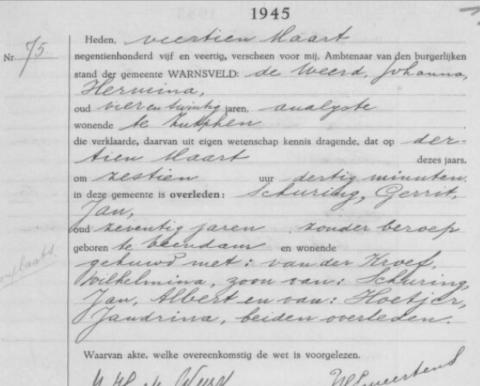 1945
Heden, veertien Maart
Nr. 75 negentienhonderd vijf en veertig, verscheen voor mij, Ambtenaar van den burgerlijken
stand der gemeente WARNSVELD: de Weerd, Johanna,
Hermina,
oud vier en twintig jaren, analyste
wonende te Zutphen
die verklaarde, daarvan uit eigen wetenschap kennis dragende, dat op der-
tien Maart dezes jaars,
om zestien uur dertig minuten
in deze gemeente is overleden: Schuring, Gerrit,
Jan,
oud zeventig jaren zonder beroep
geboren te Veendam en wonende
gehuwd met: van der Kroef,
Wilhelmina, zoon van: Schuring,
Jan, Albert en van: Hoetjer,
Jandrina, beiden overleden.
Waarvan akte, welke overeenkomstig de wet is voorgelezen.
de Weerd